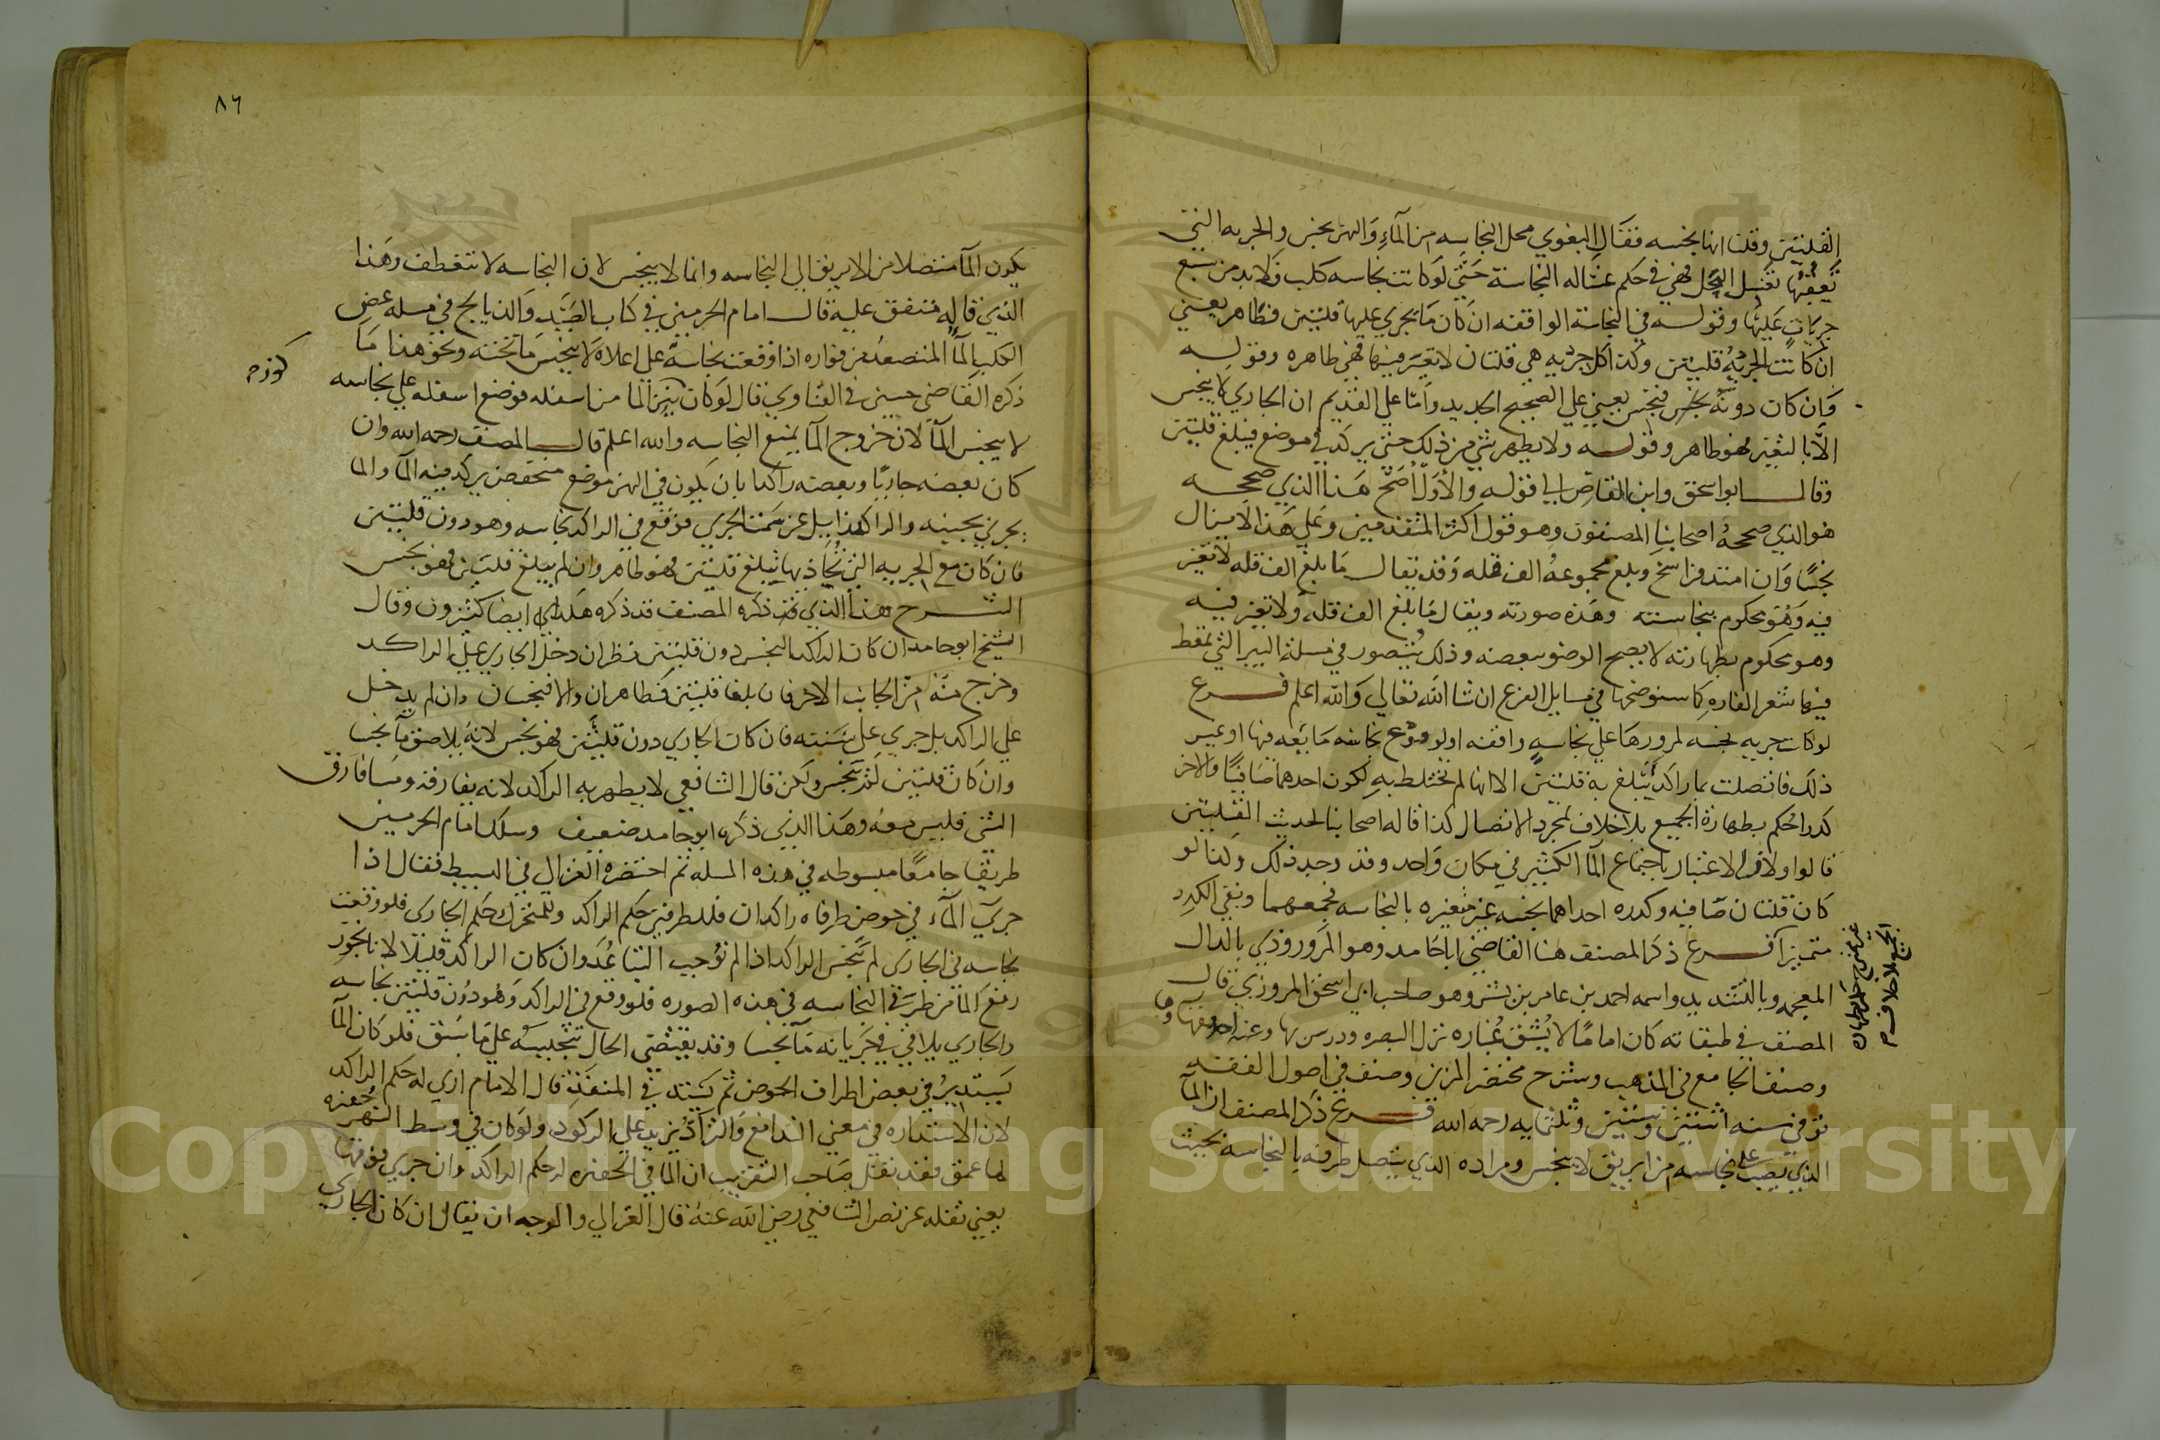 القلتين وقلنا انها نجسه فقال البغوي محل النجاسه من الماء والنهر نجس والجريه التي
تعقبها تغسل المحل فهي في حكم غساله النجاسة حتى لو كانت نجاسه كلب فلا بد من سبع
جريات عليها وقوله في النجاسة الواقفه ان كان ما يجري عليها قلتين فطاهر يعني
ان كانت الجرية قلتين وكذا كل جريه هي قلتان لا تغير فيها فهي طاهره وقوله
وان كان دونه نجس فنجس يعني على الصحيح الجديد واما على القديم ان الجاري لا ينجس
الا بالتغير فهو طاهر وقوله ولا يطهر شي من ذلك حتى يركد في موضع فيبلغ قلتين
وقال ابو اسحق وابن القاص الى قوله والاول اصح هذا الذي صححه
هو الذي صححه اصحابنا المصنفون وهو قول اكثر المتقدمين وعلى هذا لا يزال
نجسا وان امتد فراسخ وبلغ مجموعه الف قله وقد يقال ما بلغ الف قله لا تغير
فيه وهو محكوم بنجاسته وهذه صورته ويقال ما بلغ الف قله ولا تغير فيه
وهو محكوم بطهارته لا يصح الوضو ببعضه وذلك يتصور في مسلة البير التي تمعط
فيها شعر الفاره كما سنوضحها في مسايل الفرع ان شا الله تعالى والله اعلم فرع
لو كانت جريه نجسه لمرورها على نجاسه واقفه او لوقوع نجاسه مايعه فيها او غير
ذلك فاتصلت بما راكد تبلغ به قلتين الا انها لم تختلط به لكون احدهما صافيا والاخر
كدرا حكم بطهارة الجميع بلا خلاف لمجرد الاتصال كذا قاله اصحابنا لحديث القلتين
قالوا ولان الاعتبار باجتماع الما الكثير في مكان واحد وقد وجد ذلك وكذا لو
كان قلتان صافيه وكدره احداهما نجسه غير متغيره بالنجاسه فجمعهما وبقي الكدر
متميزا فرع ذكر المصنف هنا القاضي ابا حامد وهو المروروذي بالذال
المعجمه وبالتشديد واسمه احمد بن عامر بن بشر وهو صاحب ابي اسحق المروزي قال
المصنف في طبقاته كان اماما لا يشق غباره نزل البصره ودرس بها وعنه اخذ فقهاوها
وصنف الجامع في المذهب وشرح مختصر المزني وصنف في اصول الفقه
توفي سنه اثنتين وستين وثلثمايه رحمه الله فرع ذكر المصنف ان الما
الذي يصب على نجاسه من ابريق لا ينجس ومراده الذي يتصل طرفه بالنجاسة بحيث
الجميع بلا خلاف م
٨٦
يكون الما متصلا من الابريق الى النجاسه وانما لا ينجس لان النجاسه لا تنعطف وهذا
الذي قاله متفق عليه قال امام الحرمين في كتاب الصيد والذبايح في مسله عض
الكلب الما المتصعد من فواره اذا وقعت نجاسة على اعلاه لا ينجس ما تحته ونحو هذا ما
ذكره القاضي حسين في الفتاوي قال لو كان ينز الما من اسفله فوضع اسفله على نجاسه
كوزم
لا ينجس الما لان خروج الما يمنع النجاسه والله اعلم قال المصنف رحمه الله وان
كان بعضه جاريا وبعضه راكدا بان يكون في النهر موضع منخفض يركد فيه الما والما
يجري بجنبه والراكد زايل عن سمت الجري فوقع في الراكد نجاسه وهو دون قلتين
فان كان مع الجريه التي تحاذيها يبلغ قلتين فهو طاهر وان لم يبلغ قلتين فهو نجس
الشرح هذا الذي ذكره المصنف قد ذكره هكذا ايضا كثيرون وقال
الشيخ ابو حامد ان كان الراكد النجس دون قلتين نظر ان دخل الجاري على الراكد
وخرج منه من الجانب الاخر فان بلغا قلتين فطاهران والا فنجسان وان لم يدخل
على الراكد بل جرى على سننه فان كان الجاري دون قلتين فهو نجس لانه يلاصق ما نجسا
وان كان قلتين لم ينجس ولكن قال الشافعي لا يطهر به الراكد لانه يفارقه وما فارق
الشي فليس معه وهذا الذي ذكره ابو حامد ضعيف وسلك امام الحرمين
طريقا جامعا مبسوطه في هذه المسله ثم اختصره الغزالي في البسيط فقال اذا
جرى الماء في حوض طرفاه راكدان فللطرفين حكم الراكد وللمتحرك حكم الجاري فلو وقعت
نجاسه في الجاري لم ينجس الراكد اذا لم نوجب التباعد وان كان الراكد قليلا لانا نجوز
رفع الما من طرفي النجاسه في هذه الصوره فلو وقع في الراكد وهو دون قلتين نجاسه
والجاري يلاقي في جريانه ما نجسا وقد يقتضي الحال تنجيسه على ما سبق فلو كان الما
يستدير في بعض اطراف الحوض ثم يستد في المنفذ قال الامام ارى له حكم الراكد
لان الاستداره في معنى التدافع والتراد يزيد على الركود ولو كان في وسط النهر حفره
لها عمق فقد نقل صاحب التقريب ان الما في الحفره له حكم الراكد وان جرى فوقها
يعني نقله عن نص الشافعي رضي الله عنه قال الغزالي والوجه ان يقال ان كان الجاري